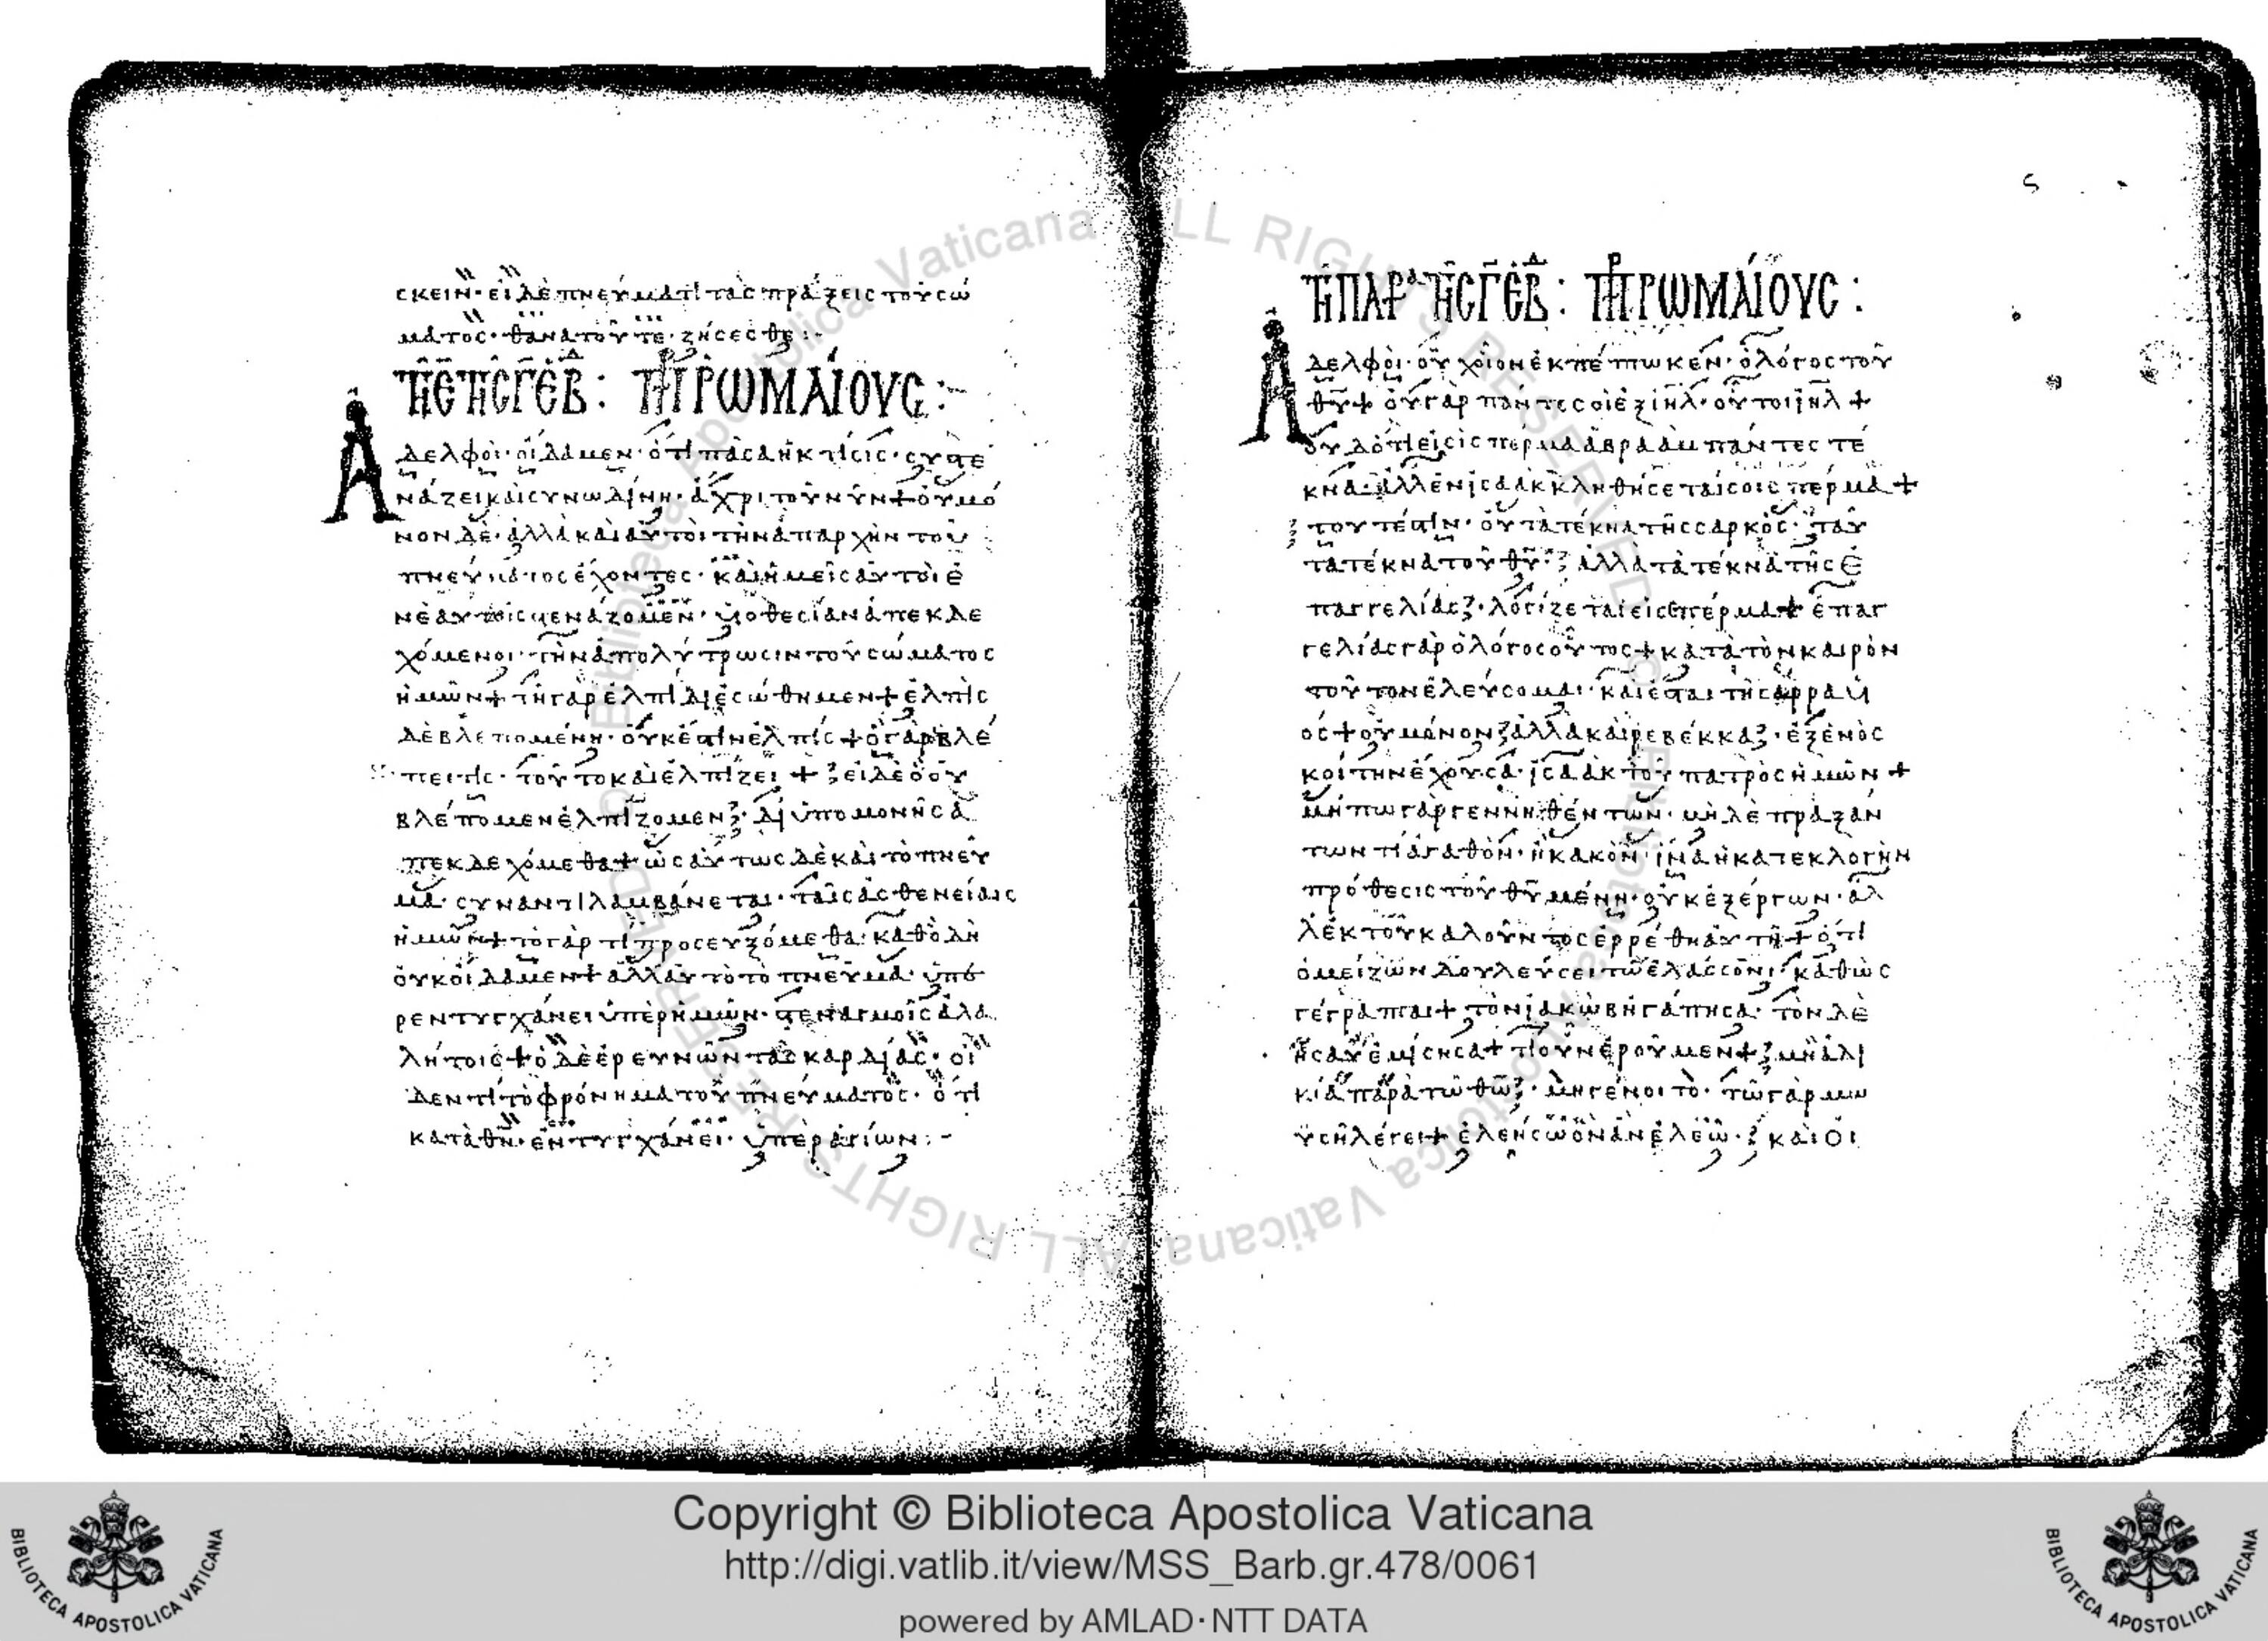 σκειν· εἰ δὲ πνεύματι τὰς πράξεις τοῦ σώ
ματος· θανατοῦτε· ζήσεσθε :-
ΤΗ Ε ΤΗΣ Γ ΕΒΔ : ΠΡ ΡΩΜΑΙΟΥΣ :-
Ἀδελφοὶ· οἴδαμεν· ὅτι πᾶσα ἡ κτίσις· συστε
νάζει καὶ συνωδίνη· ἄχρι τοῦ νῦν + οὐ μό
νον δὲ· ἀλλὰ καὶ αὐτοὶ τὴν ἀπαρχὴν τοῦ
πνεύματος ἔχοντες· καὶ ἡμεῖς αὐτοὶ ἐ
ν ἑαυτοῖς στενάζομεν· υἱοθεσίαν ἀπεκδε
χόμενοι· τὴν ἀπολύτρωσιν τοῦ σώματος
ἡμῶν + τῇ γὰρ ἐλπίδι ἐσώθημεν + ἐλπὶς
δὲ βλεπομένη· οὐκ ἔστιν ἐλπίς + ὃ γὰρ βλέ
πει τίς· τοῦτο καὶ ἐλπίζει + εἰ δὲ ὃ οὐ
βλέπομεν ἐλπίζομεν· δι ὑπομονῆς ἀ
πεκδεχόμεθα + ὡσαύτως δὲ καὶ τὸ πνεῦ
μα· συναντιλαμβάνεται· ταῖς ἀσθενείαις
ἡμῶν + τὸ γὰρ τί προσευξόμεθα· καθὸ δὴ
οὐκ οἴδαμεν + ἀλλ αὐτὸ τὸ πνεῦμα· ὑπὸ
ρεντυγχάνει ὑπὲρ ἡμῶν· στεναγμοῖς ἀλα
λήτοις + ὁ δὲ ἐρευνῶν τὰς καρδίας· οἶ
δεν τί τὸ φρόνημα τοῦ πνεύματος· ὅτι
κατὰ θν· ἐντυγχάνει· ὑπὲρ ἁγίων :-
ΤΗ ΠΑΡΑ ΤΗΣ Γ ΕΒΔ : ΠΡ ΡΩΜΑΙΟΥΣ :
Ἀδελφοὶ· οὐχ οἷον ἐκπέπτωκεν· ὁ λόγος τοῦ
θυ + οὐ γὰρ πάντες οἱ ἐξ ιηλ· οὗτοι ιηλ +
οὐδ ὅτι εἰσὶ σπέρμα ἀβραὰμ πάντες τέ
κνα· ἀλλ ἐν ἰσαὰκ κληθήσεταί σοι σπέρμα +
τουτέστιν· οὐ τὰ τέκνα τῆς σαρκὸς· ταῦ
τα τέκνα τοῦ θυ· ἀλλὰ τὰ τέκνα τῆς ἐ
παγγελίας· λογίζεται εἰς σπέρμα + ἐπαγ
γελίας γὰρ ὁ λόγος οὗτος + κατὰ τὸν καιρὸν
τοῦτον ἐλεύσομαι· καὶ ἔσται τῇ σάρρᾳ υἱ
ός + οὐ μόνον ἀλλὰ καὶ ρεβέκκα· ἐξ ἑνὸς
κοίτην ἔχουσα· ἰσαὰκ τοῦ πατρὸς ἡμῶν +
μήπω γὰρ γεννηθέντων· μὴ δὲ πραξάν
των τὶ ἀγαθὸν· ἢ κακὸν· ἵνα ἡ κατ ἐκλογὴν
πρόθεσις τοῦ θυ μένη· οὐκ ἐξ ἔργων· ἀλ
λ ἐκ τοῦ καλοῦντος ἐρρέθη αὐτῇ + ὅτι
ὁ μείζων δουλεύσει τῷ ἐλάσσονι· καθὼς
γέγραπται + τὸν ἰακὼβ ἠγάπησα· τὸν δὲ
ἠσαῦ ἐμίσησα + τί οὖν ἐροῦμεν + μὴ ἀδι
κία παρὰ τῷ θῶ· μὴ γένοιτο· τῷ γὰρ μω
υσῆ λέγει + ἐλεήσω ὃν ἂν ἐλεῶ· καὶ οἰ
Copyright © Biblioteca Apostolica Vaticana
http://digi.vatlib.it/view/MSS_Barb.gr.478/0061
powered by AMLAD·NTT DATA